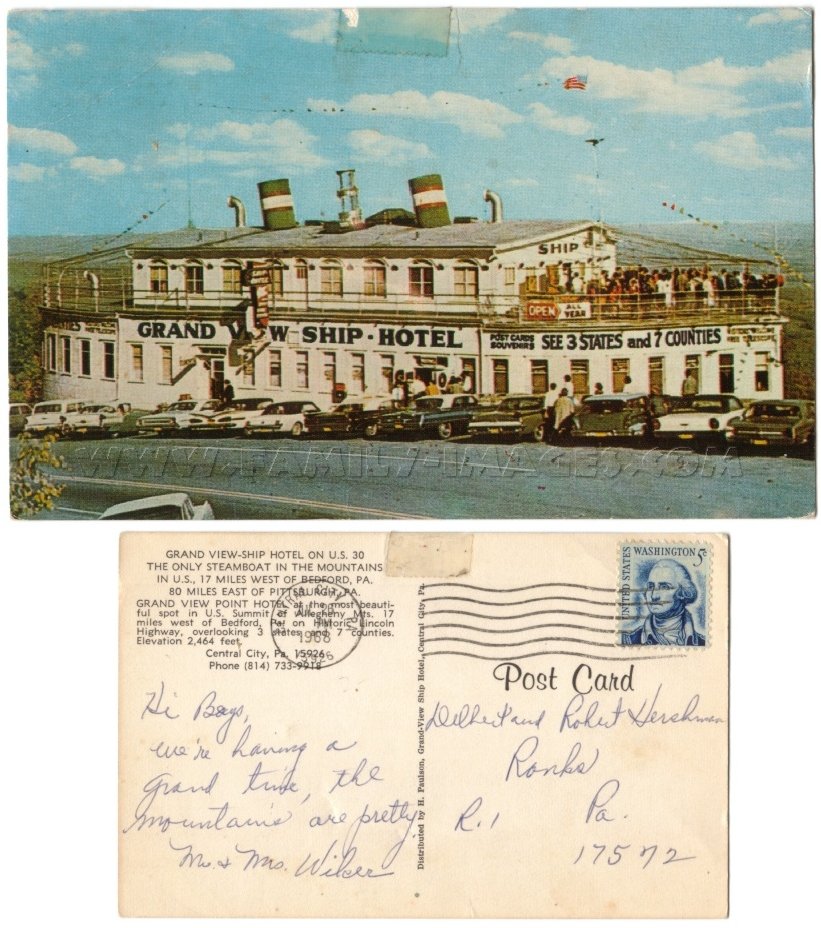 SHIP
OPEN
ALL YEAR
GRAND VIEW SHIP - HOTEL
POST CARDS
SOUVENIRS
SEE 3 STATES and 7 COUNTIES
FREE TELESCOPE
WWW.FAMILY-IMAGES.COM
GRAND VIEW-SHIP HOTEL ON U.S. 30
THE ONLY STEAMBOAT IN THE MOUNTAINS
IN U.S., 17 MILES WEST OF BEDFORD, PA.
80 MILES EAST OF PITTSBURGH, PA.
GRAND VIEW POINT HOTEL at the most beauti-
ful spot in U.S. Summit of Allegheny Mts. 17
miles west of Bedford, Pa. on Historic Lincoln
Highway, overlooking 3 states and 7 counties.
Elevation 2,464 feet.
Central City, Pa. 15926
Phone (814) 733-9918
CENTRAL CITY, PA.
AUG
1968
15926
Hi Boys,
we're having a
grand time, the
mountains are pretty.
Mr. & Mrs. Wiker
Distributed by H. Paulson, Grand-View Ship Hotel, Central City, Pa.
UNITED STATES
WASHINGTON 5c
Post Card
Delbert and Robert Hershman
Ronks
R. 1 Pa.
17572